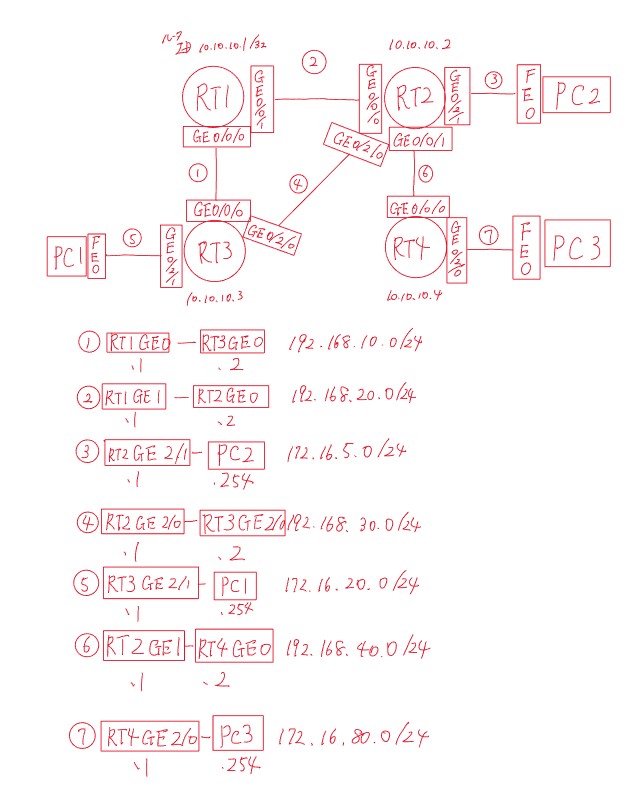 ルータ
ID 10.10.10.1/32
10.10.10.2
②
RT1
GE0/0/1
GE0/0/0
RT2
GE0/2/1
③
FE0
PC2
GE0/0/0
GE0/2/0
GE0/0/1
①
④
⑥
GE0/0/0
GE0/0/0
PC1
FE0
⑤
GE0/2/1
RT3
GE0/2/0
RT4
GE0/2/0
⑦
FE0
PC3
10.10.10.3
10.10.10.4
① RT1GE0 — RT3GE0 192.168.10.0/24
.1 .2
② RT1GE1 — RT2GE0 192.168.20.0/24
.1 .2
③ RT2GE2/1 - PC2 172.16.5.0/24
.1 .254
④ RT2GE2/0 - RT3GE2/0 192.168.30.0/24
.1 .2
⑤ RT3GE2/1 - PC1 172.16.20.0/24
.1 .254
⑥ RT2GE1 - RT4GE0 192.168.40.0/24
.1 .2
⑦ RT4GE2/0 - PC3 172.16.80.0/24
.1 .254